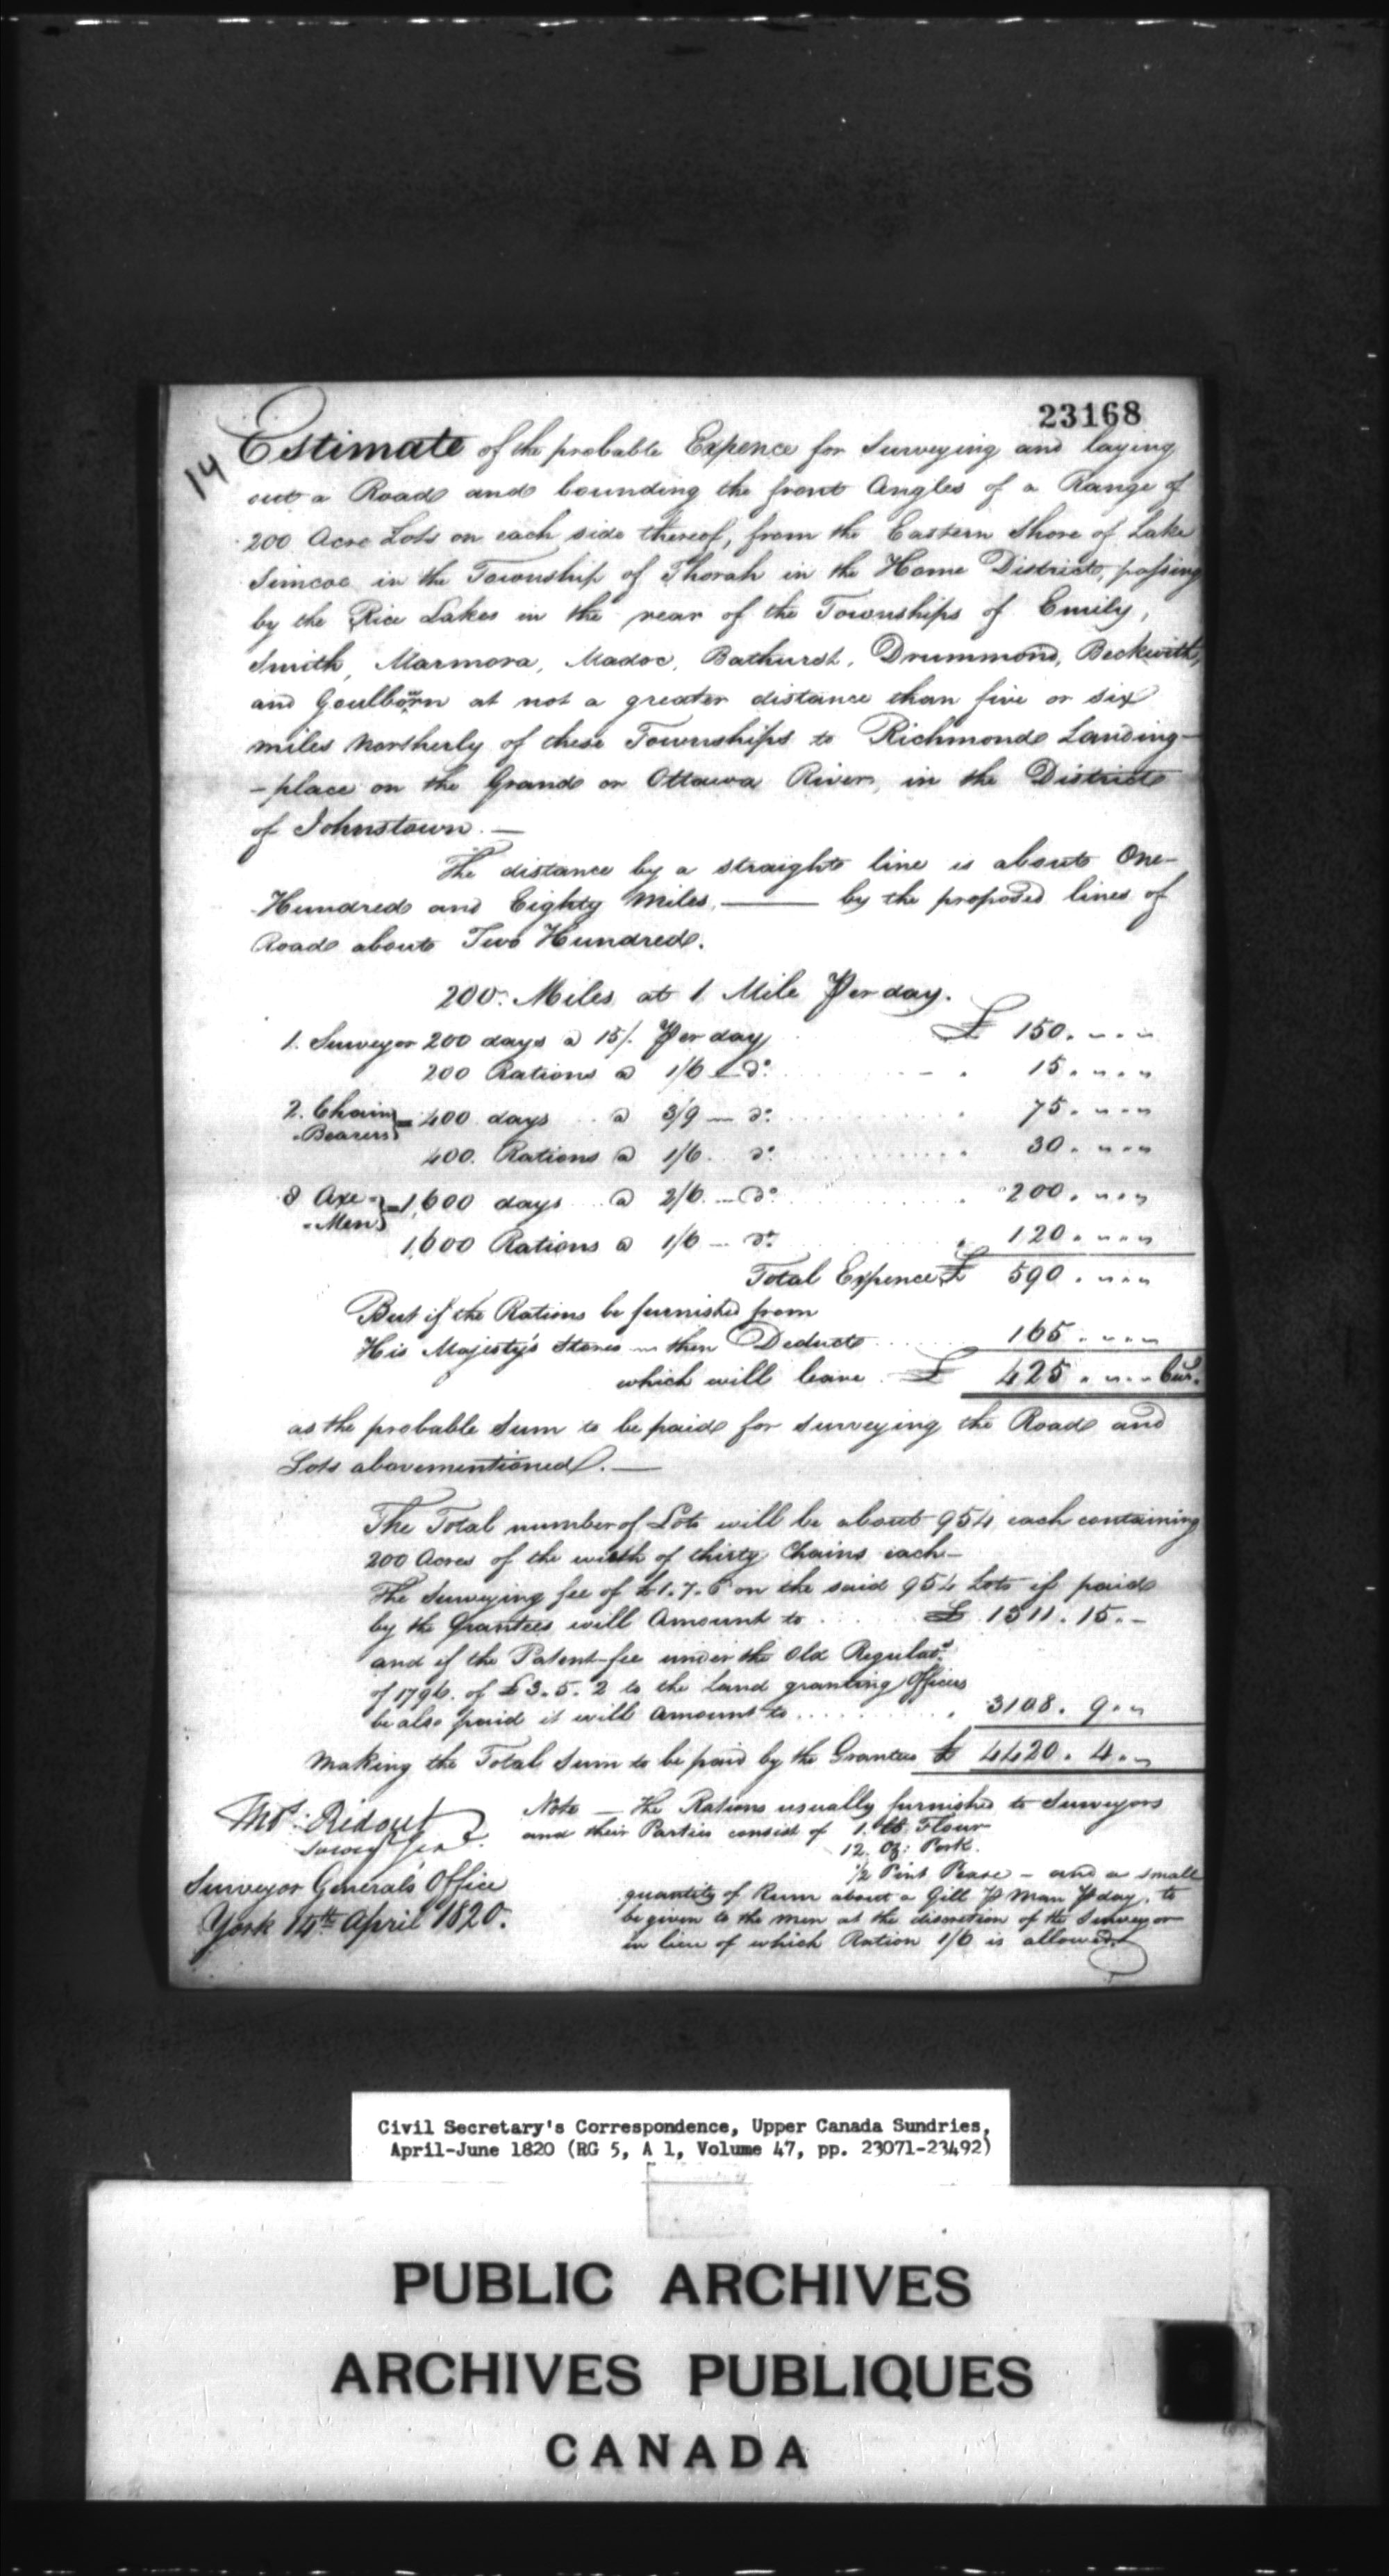 23168
14
Estimate of the probable Expence for Surveying and laying
out a Road and bounding the front Angles of a Range of
200 Acre Lots on each side thereof, from the Eastern Shore of Lake
Simcoe in the Township of Thorah in the Home District, passing
by the Rice Lakes in the rear of the Townships of Emily,
Smith, Marmora, Madoc, Bathurst, Drummond, Beckwith,
and Goulborn at not a greater distance than five or six
miles Northerly of these Townships to Richmond Landing-
-place on the Grand or Ottawa River, in the District
of Johnstown. —
The distance by a straight line is about One-
Hundred and Eighty Miles, —— by the proposed lines of
Road about Two Hundred.
200. Miles, at 1 Mile Per day.
1. Surveyor 200 days @ 15/. Per day £ 150. " . "
200 Rations @ 1/6 — do. 15. " . "
2. Chain Bearers } = 400 days @ 3/9 — do. 75. " . "
400. Rations @ 1/6. do. 30. " . "
8 Axe-Men } = 1,600 days @ 2/6. — do. 200. " . "
1,600 Rations @ 1/6 — do. 120. " . "
Total Expence £ 590. " . "
But if the Rations be furnished from
His Majesty's Stores — then Deduct 165. " . "
which will leave £ 425. " . " Cur.
as the probable Sum to be paid for surveying the Road and
Lots abovementioned. —
The Total number of Lots will be about 954 each containing
200 Acres of the width of thirty Chains each—
The Surveying fee of £1.7.6 on the said 954 Lots if paid
by the Grantees will Amount to £ 1311. 15. -
and if the Patent-fee under the Old Regulats.
of 1796. of £3.5.2 to the Land granting Officers
be also paid it will Amount to 3108. 9. "
Making the Total Sum to be paid by the Grantees £ 4420. 4. "
Note — The Rations usually furnished to Surveyors
and their Parties consist of 1. lb Flour
12. Oz: Pork.
1/2 Pint Pease — and a small
quantity of Rum about a Gill P Man P day, to
be given to the men at the discretion of the Surveyor
in lieu of which Ration 1/6 is allowed.
Thos. Ridout
Survr Genl.
Surveyor General's Office
York 14th April 1820.
Civil Secretary's Correspondence, Upper Canada Sundries,
April-June 1820 (RG 5, A 1, Volume 47, pp. 23071-23492)
PUBLIC ARCHIVES
ARCHIVES PUBLIQUES
CANADA